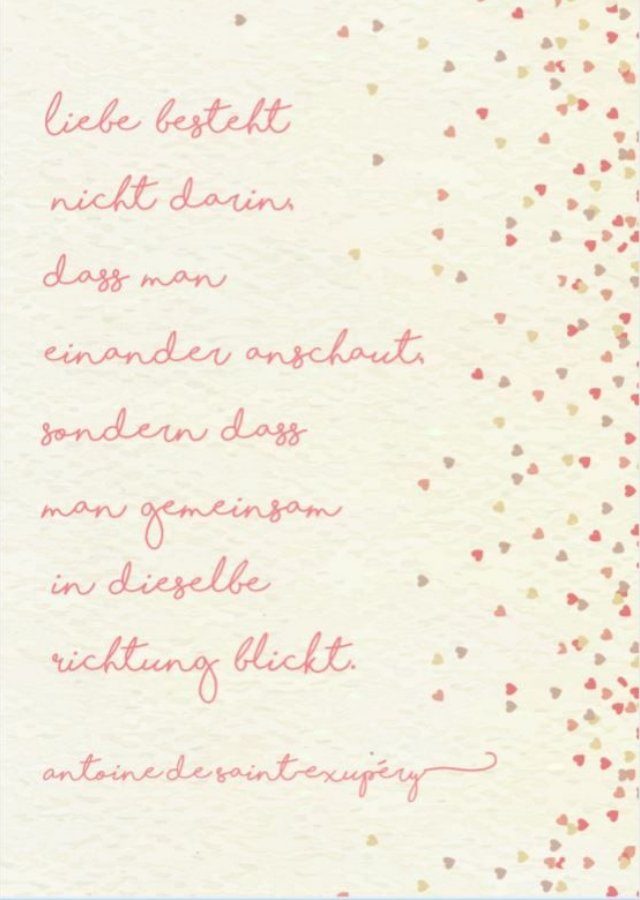 liebe besteht
nicht darin,
dass man
einander anschaut,
sondern dass
man gemeinsam
in dieselbe
richtung blickt.
antoine de saint-exupéry